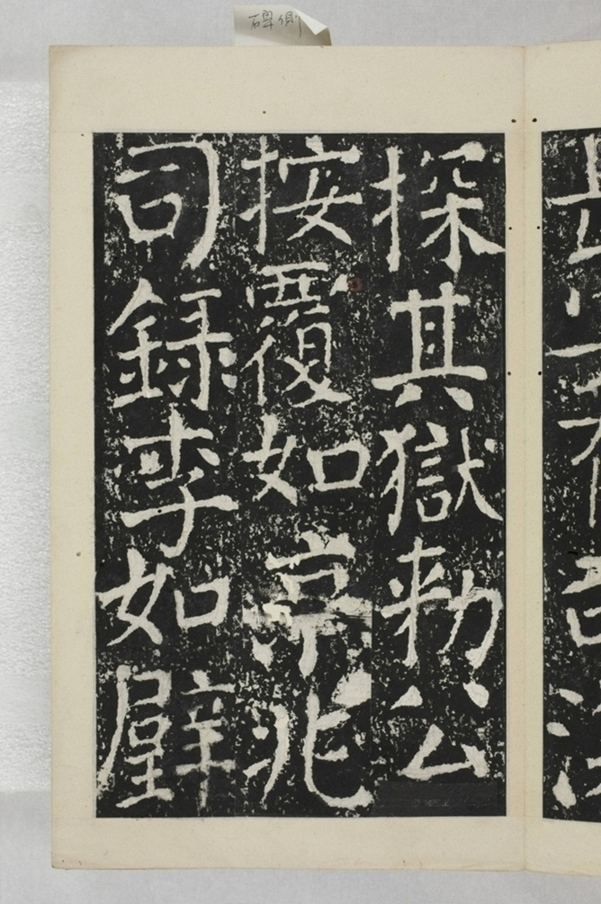 碑側
探其獄勅公
按覆如京兆
司録李如璧